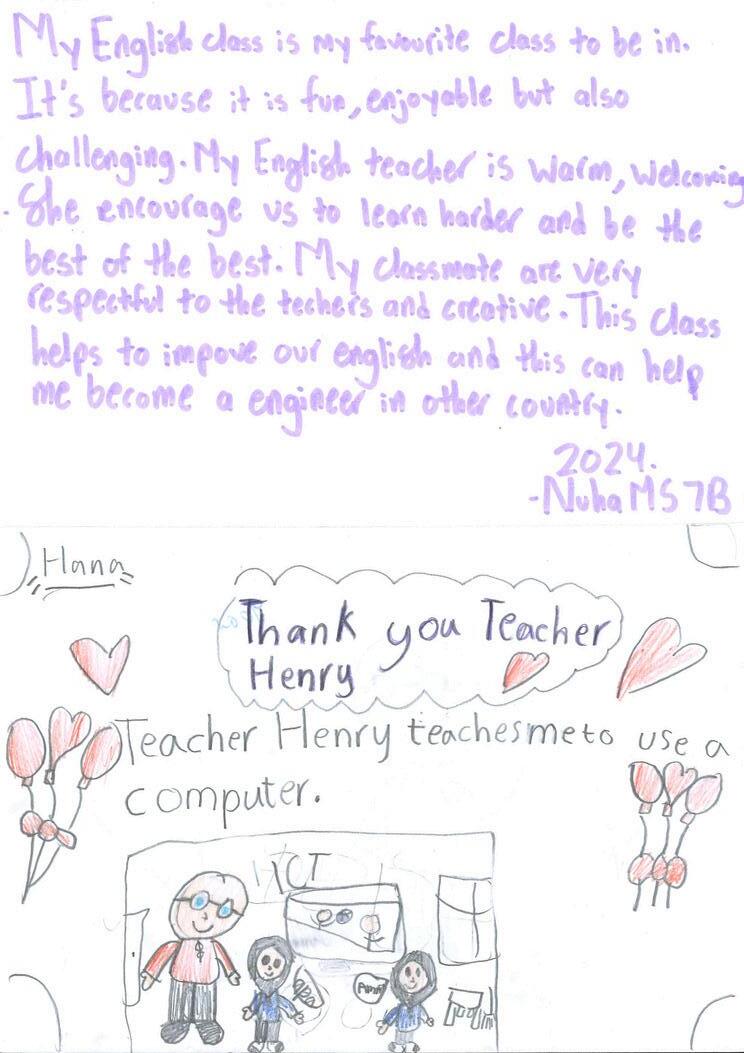 My English class is my favourite class to be in.
It's because it is fun, enjoyable but also
challenging. My English teacher is warm, welcoming
. She encourage us to learn harder and be the
best of the best. My classmate are very
respectful to the techers and creative. This class
helps to impove our english and this can help
me become a engineer in other country.
2024.
-Nuha MS 7B
Hana
Thank you Teacher
Henry
Teacher Henry teaches me to use a
computer.
ICT